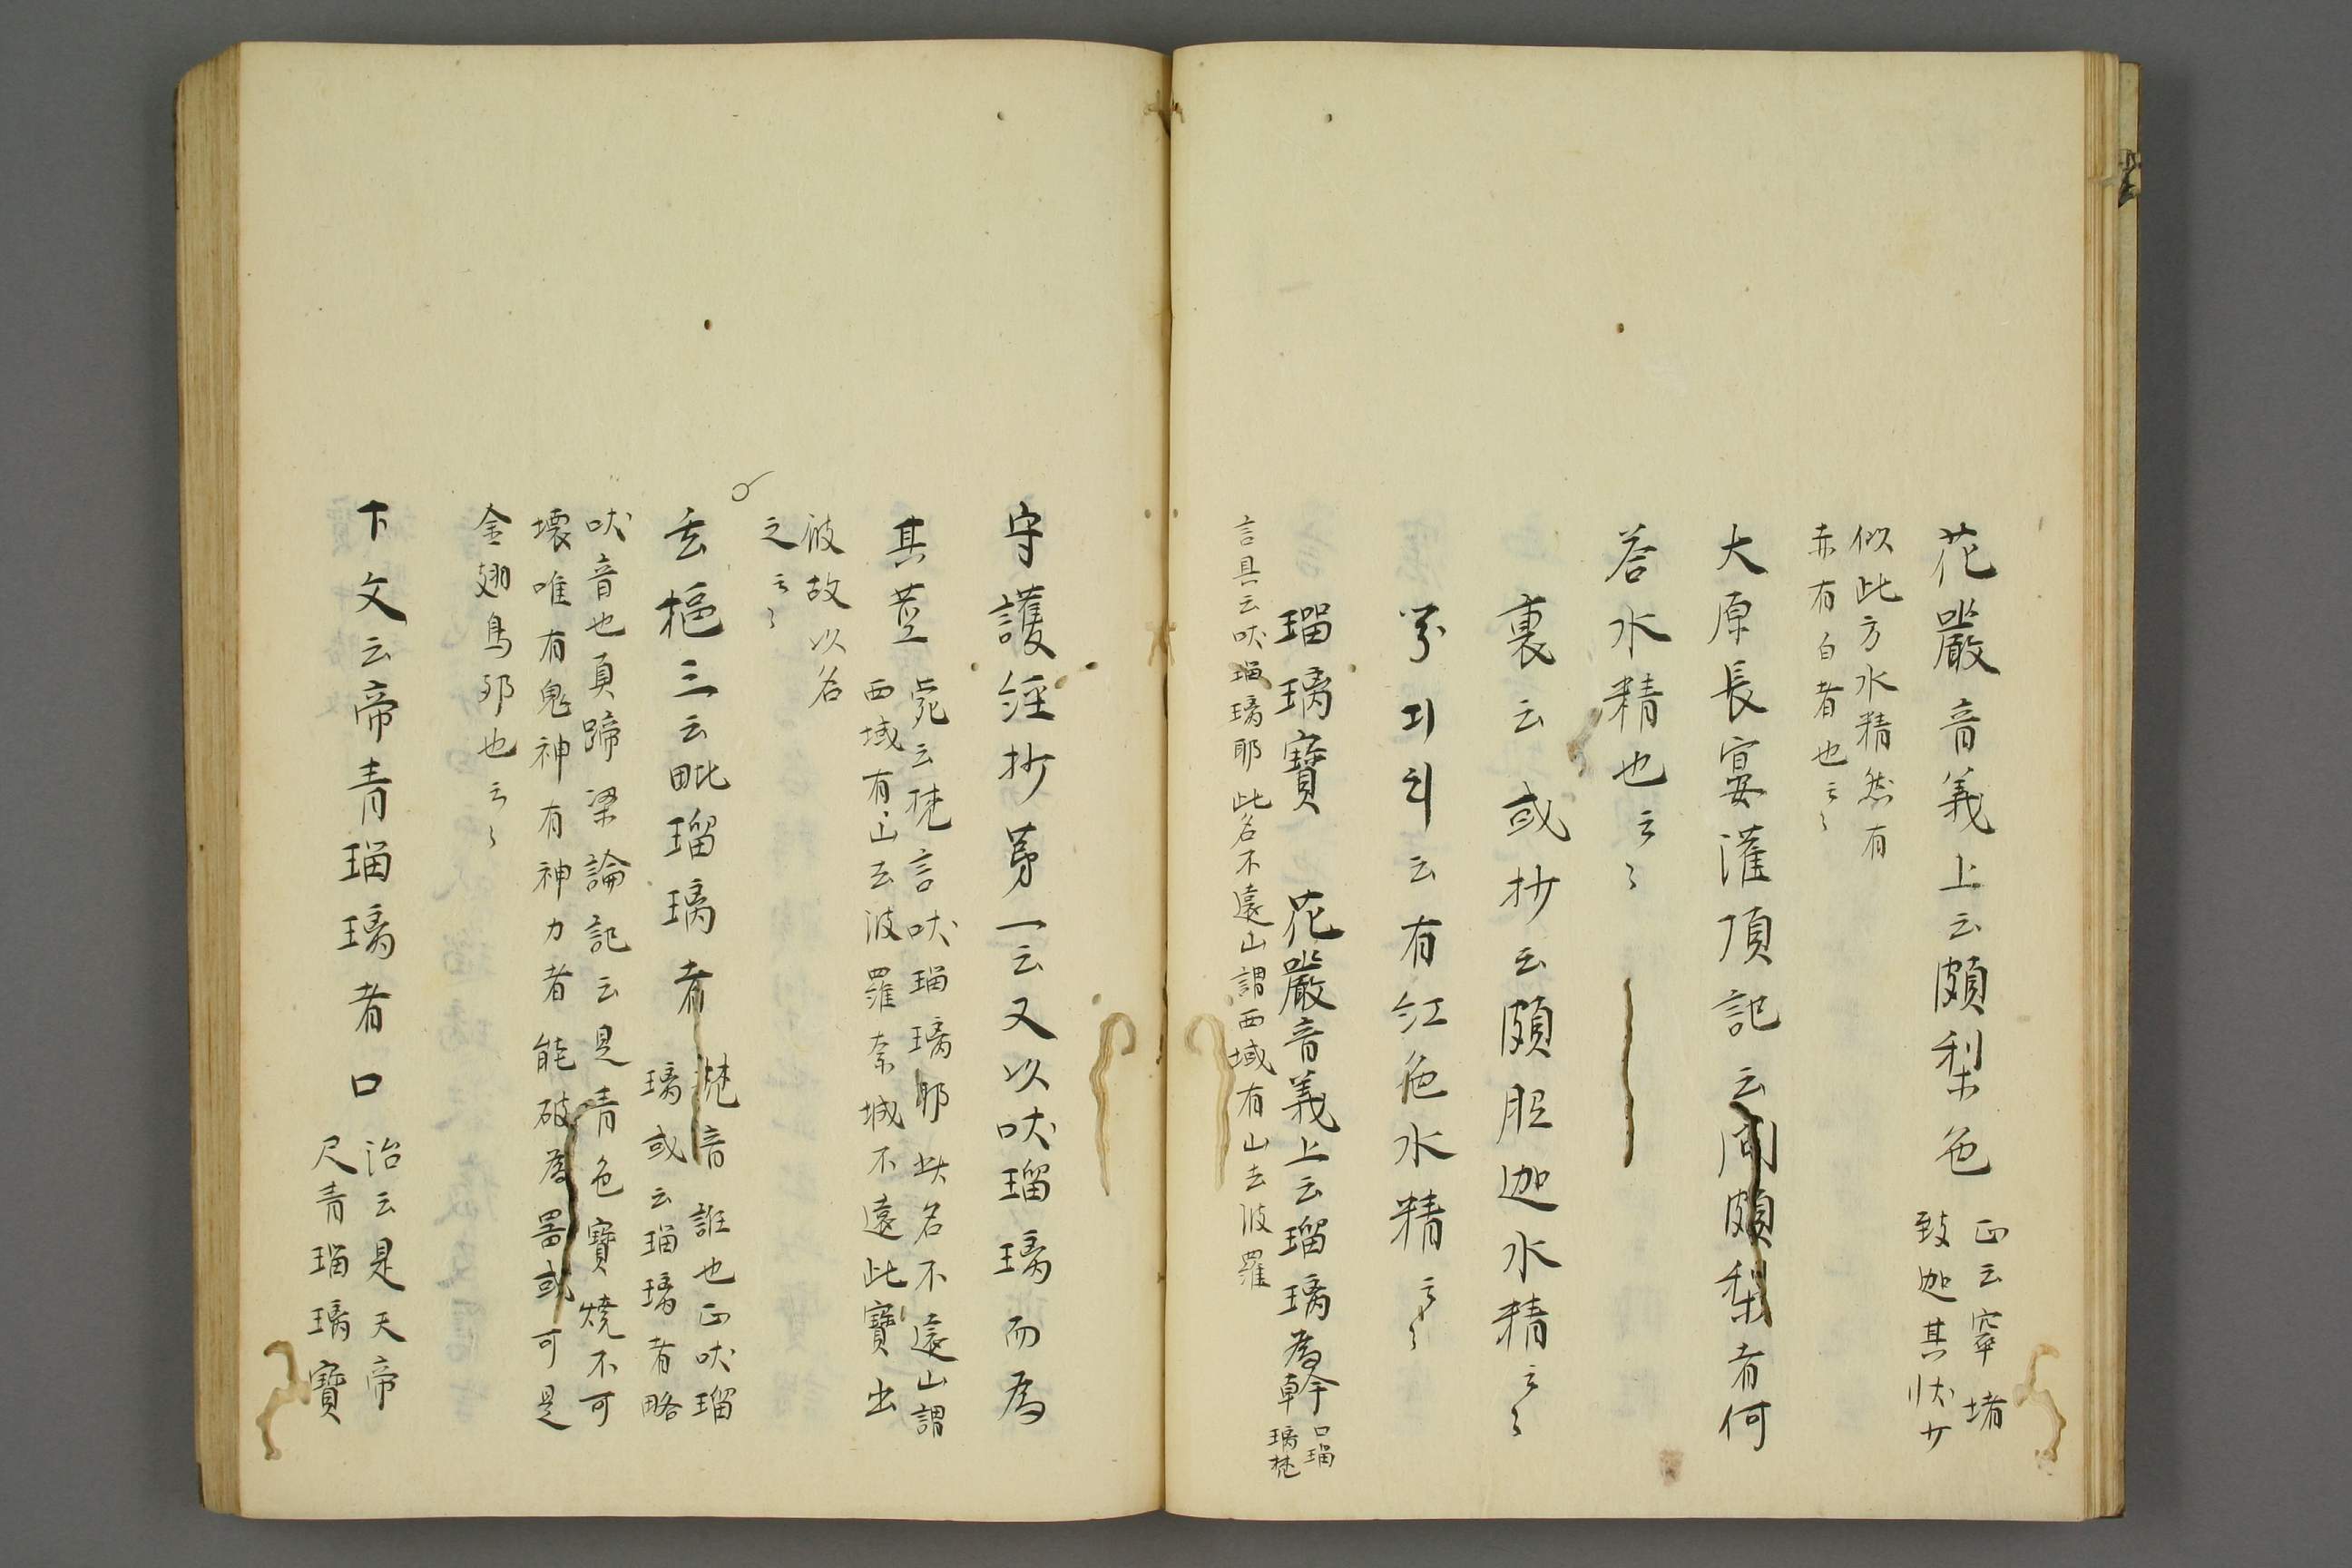 花嚴音義上云頗梨色
正云窣堵
致迦其狀少
似此方水精然有
赤有白者也云々
大原長宴灌頂記云問頗梨者何
答水精也云々
裏云或抄云頗胝迦水精云々
云有紅色水精云々
瑠璃寶 花嚴音義上云瑠璃為幹
口瑠
璃梵
言具云吠瑠璃耶此名不遠山謂西域有山去波羅
守護經抄第一云又以吠瑠璃而為
其莖
苑云梵言吠瑠璃耶此名不遠山謂
西域有山去波羅奈城不遠此寶出
彼故以名
之云々
玄樞三云毗瑠璃者
梵音誰也正吠瑠
璃或云瑠璃者略
吠音也真蹄梁論記云是青色寶燒不可
壞唯有鬼神有神力者能破為器或可是
金翅鳥卵也云々
下文云帝青瑠璃者口
治云是天帝
尺青瑠璃寶